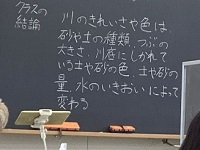 クラスの
結論
川のきれいさや色は、
砂や土の種類、つぶの
大きさ、川底にしかれて
いる土や砂の色、土や砂の
量、水のいきおいによって
変わる